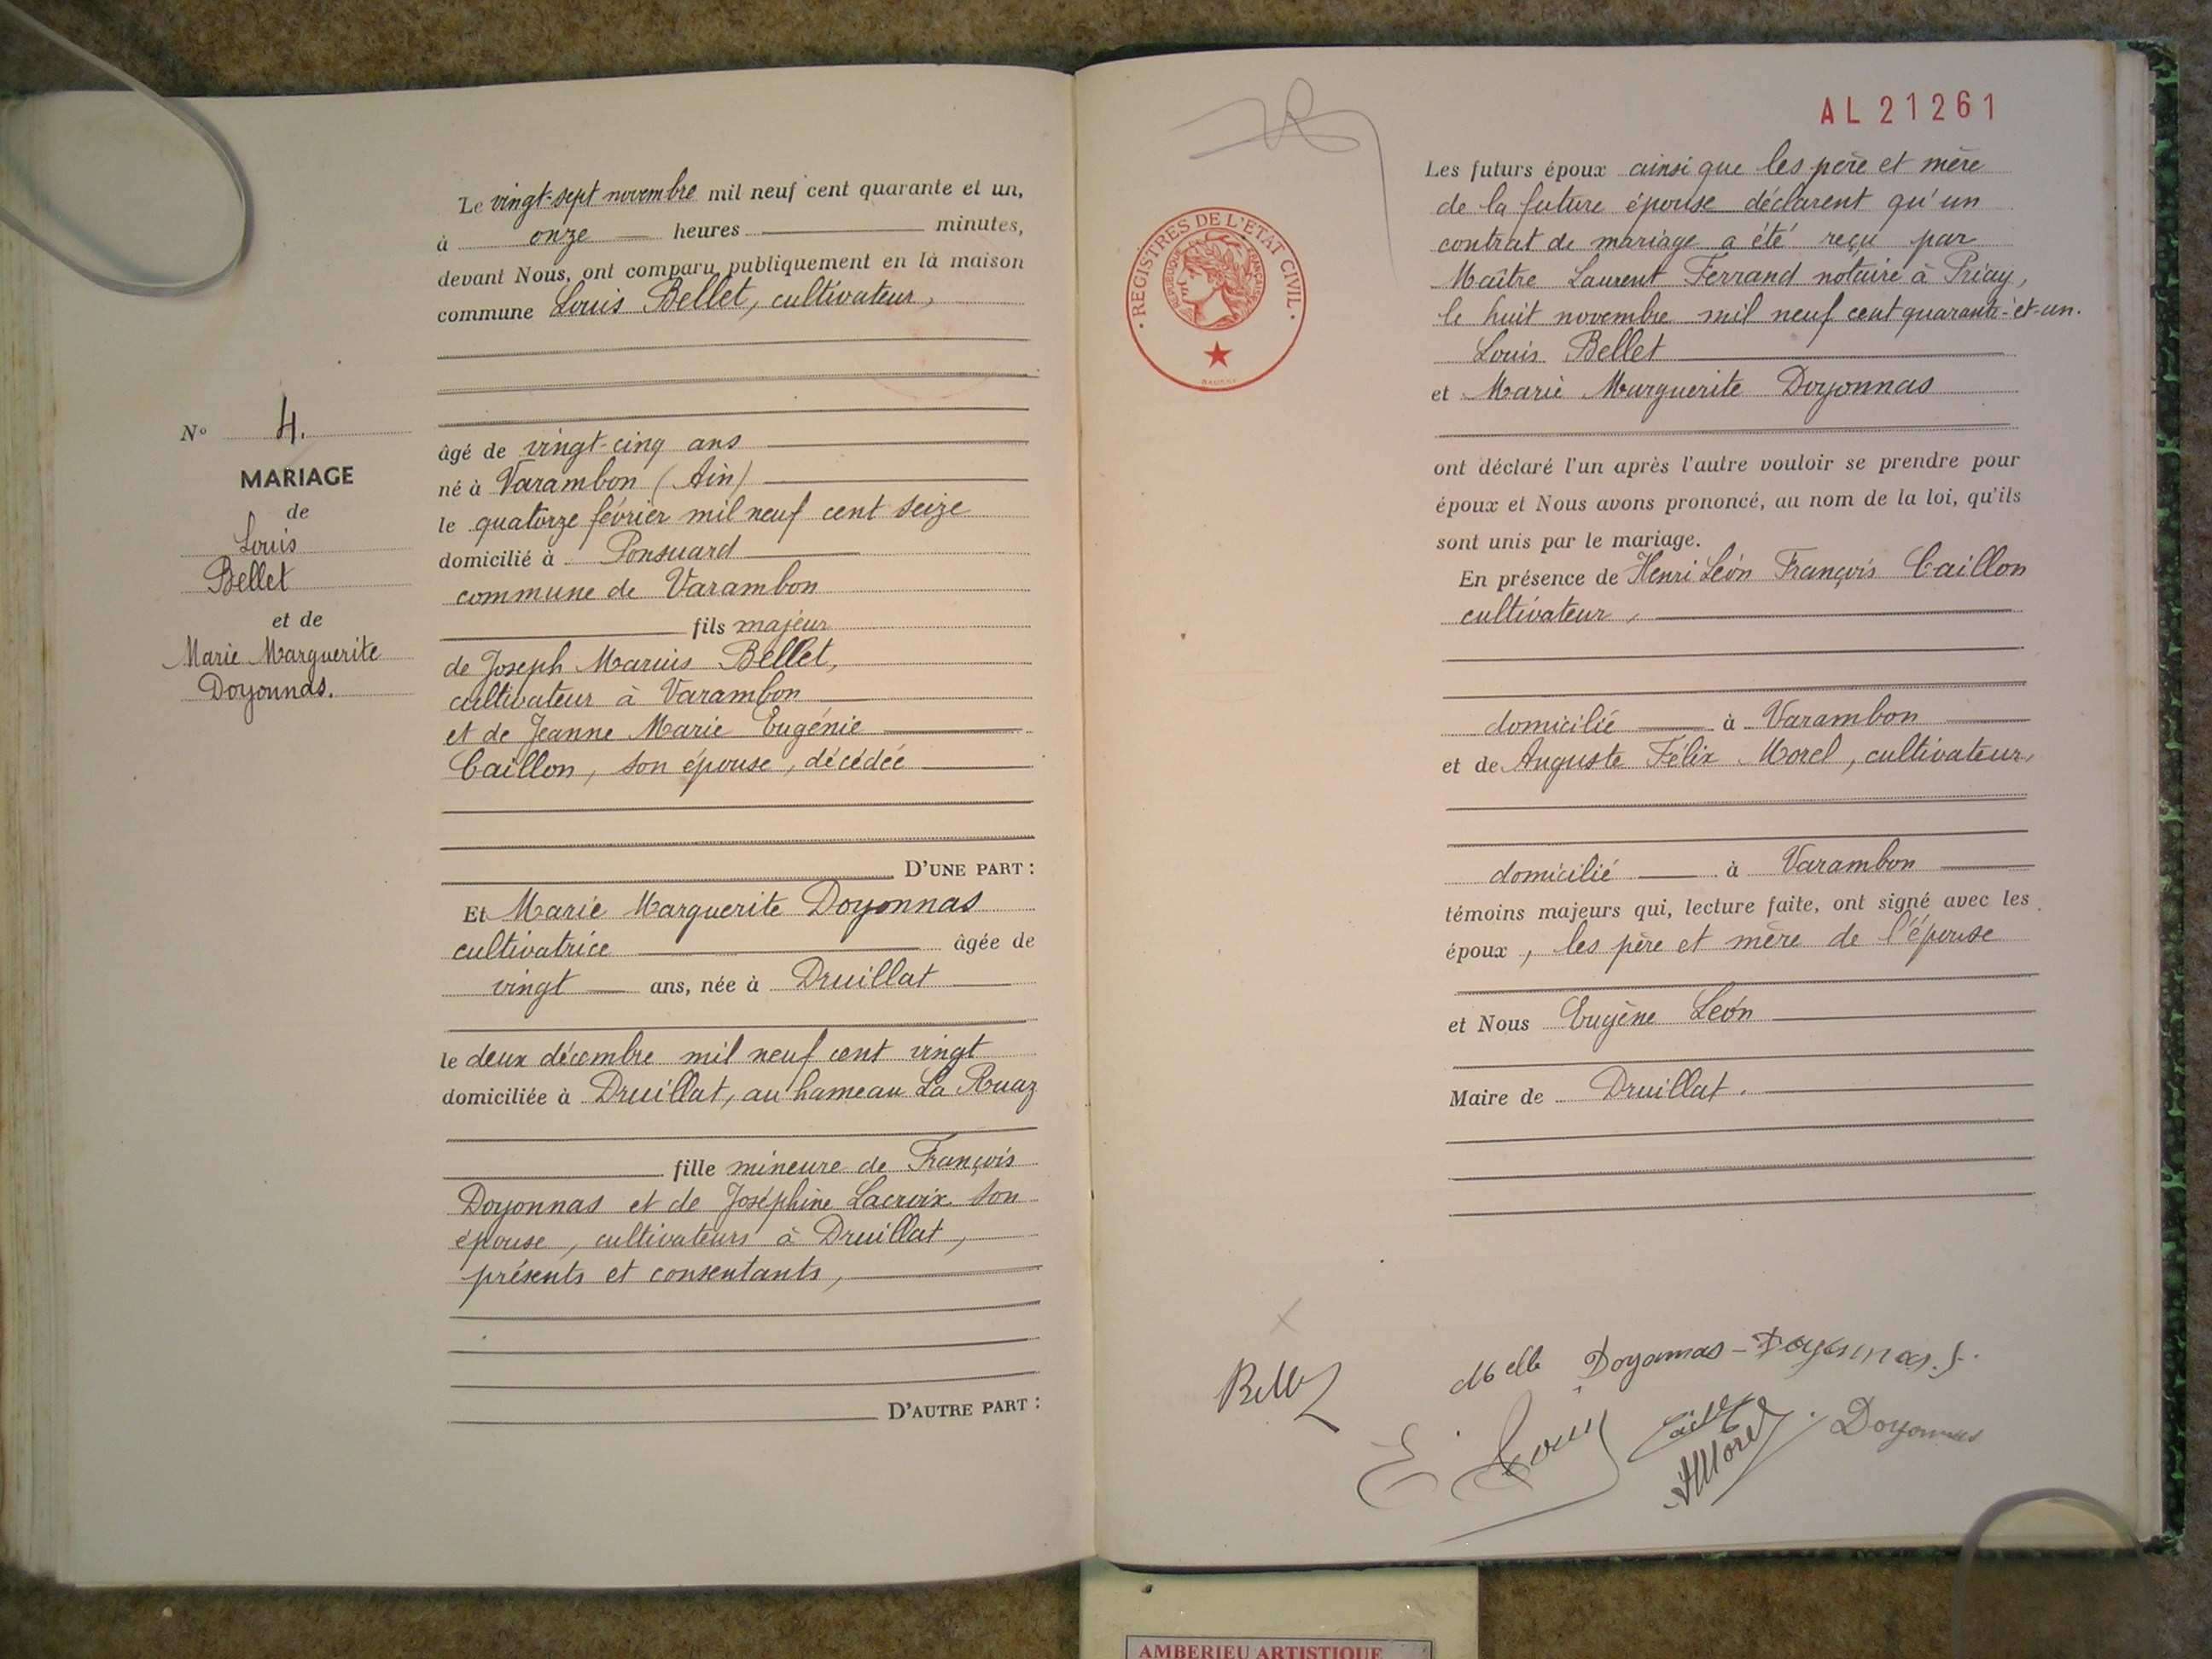 Le vingt-sept novembre mil neuf cent quarante et un,
à onze heures minutes,
devant Nous, ont comparu publiquement en la maison
commune Louis Bellet, cultivateur,
âgé de vingt-cinq ans
né à Varambon (Ain)
le quatorze février mil neuf cent seize
domicilié à Ponsuard
commune de Varambon
fils majeur
de Joseph Marius Bellet,
cultivateur à Varambon
et de Jeanne Marie Eugénie
Caillon, son épouse, décédée
D'UNE PART :
Et Marie Marguerite Doyonnas
cultivatrice âgée de
vingt ans, née à Druillat
le deux décembre mil neuf cent vingt
domiciliée à Druillat, au hameau La Ruaz
fille mineure de François
Doyonnas et de Joséphine Lacroix son
épouse, cultivateurs à Druillat,
présents et consentants,
D'AUTRE PART :
No 4.
MARIAGE
de
Louis
Bellet
et de
Marie Marguerite
Doyonnas.
AL 21261
REGISTRES DE L'ETAT CIVIL
REPUBLIQUE FRANÇAISE
Les futurs époux ainsi que les père et mère
de la future épouse déclarent qu'un
contrat de mariage a été reçu par
Maître Laurent Ferrand notaire à Priay,
le huit novembre mil neuf cent quarante-et-un.
Louis Bellet
et Marie Marguerite Doyonnas
ont déclaré l'un après l'autre vouloir se prendre pour
époux et Nous avons prononcé, au nom de la loi, qu'ils
sont unis par le mariage.
En présence de Henri Léon François Caillon
cultivateur,
domicilié à Varambon
et de Auguste Félix Morel, cultivateur,
domicilié à Varambon
témoins majeurs qui, lecture faite, ont signé avec les
époux, les père et mère de l'épouse
et Nous Eugène Léon
Maire de Druillat.
Melle Doyonnas - Doyonnas. J.
Bellet
E.
AMorel
Doyonnas
AMBERIEU ARTISTIQUE